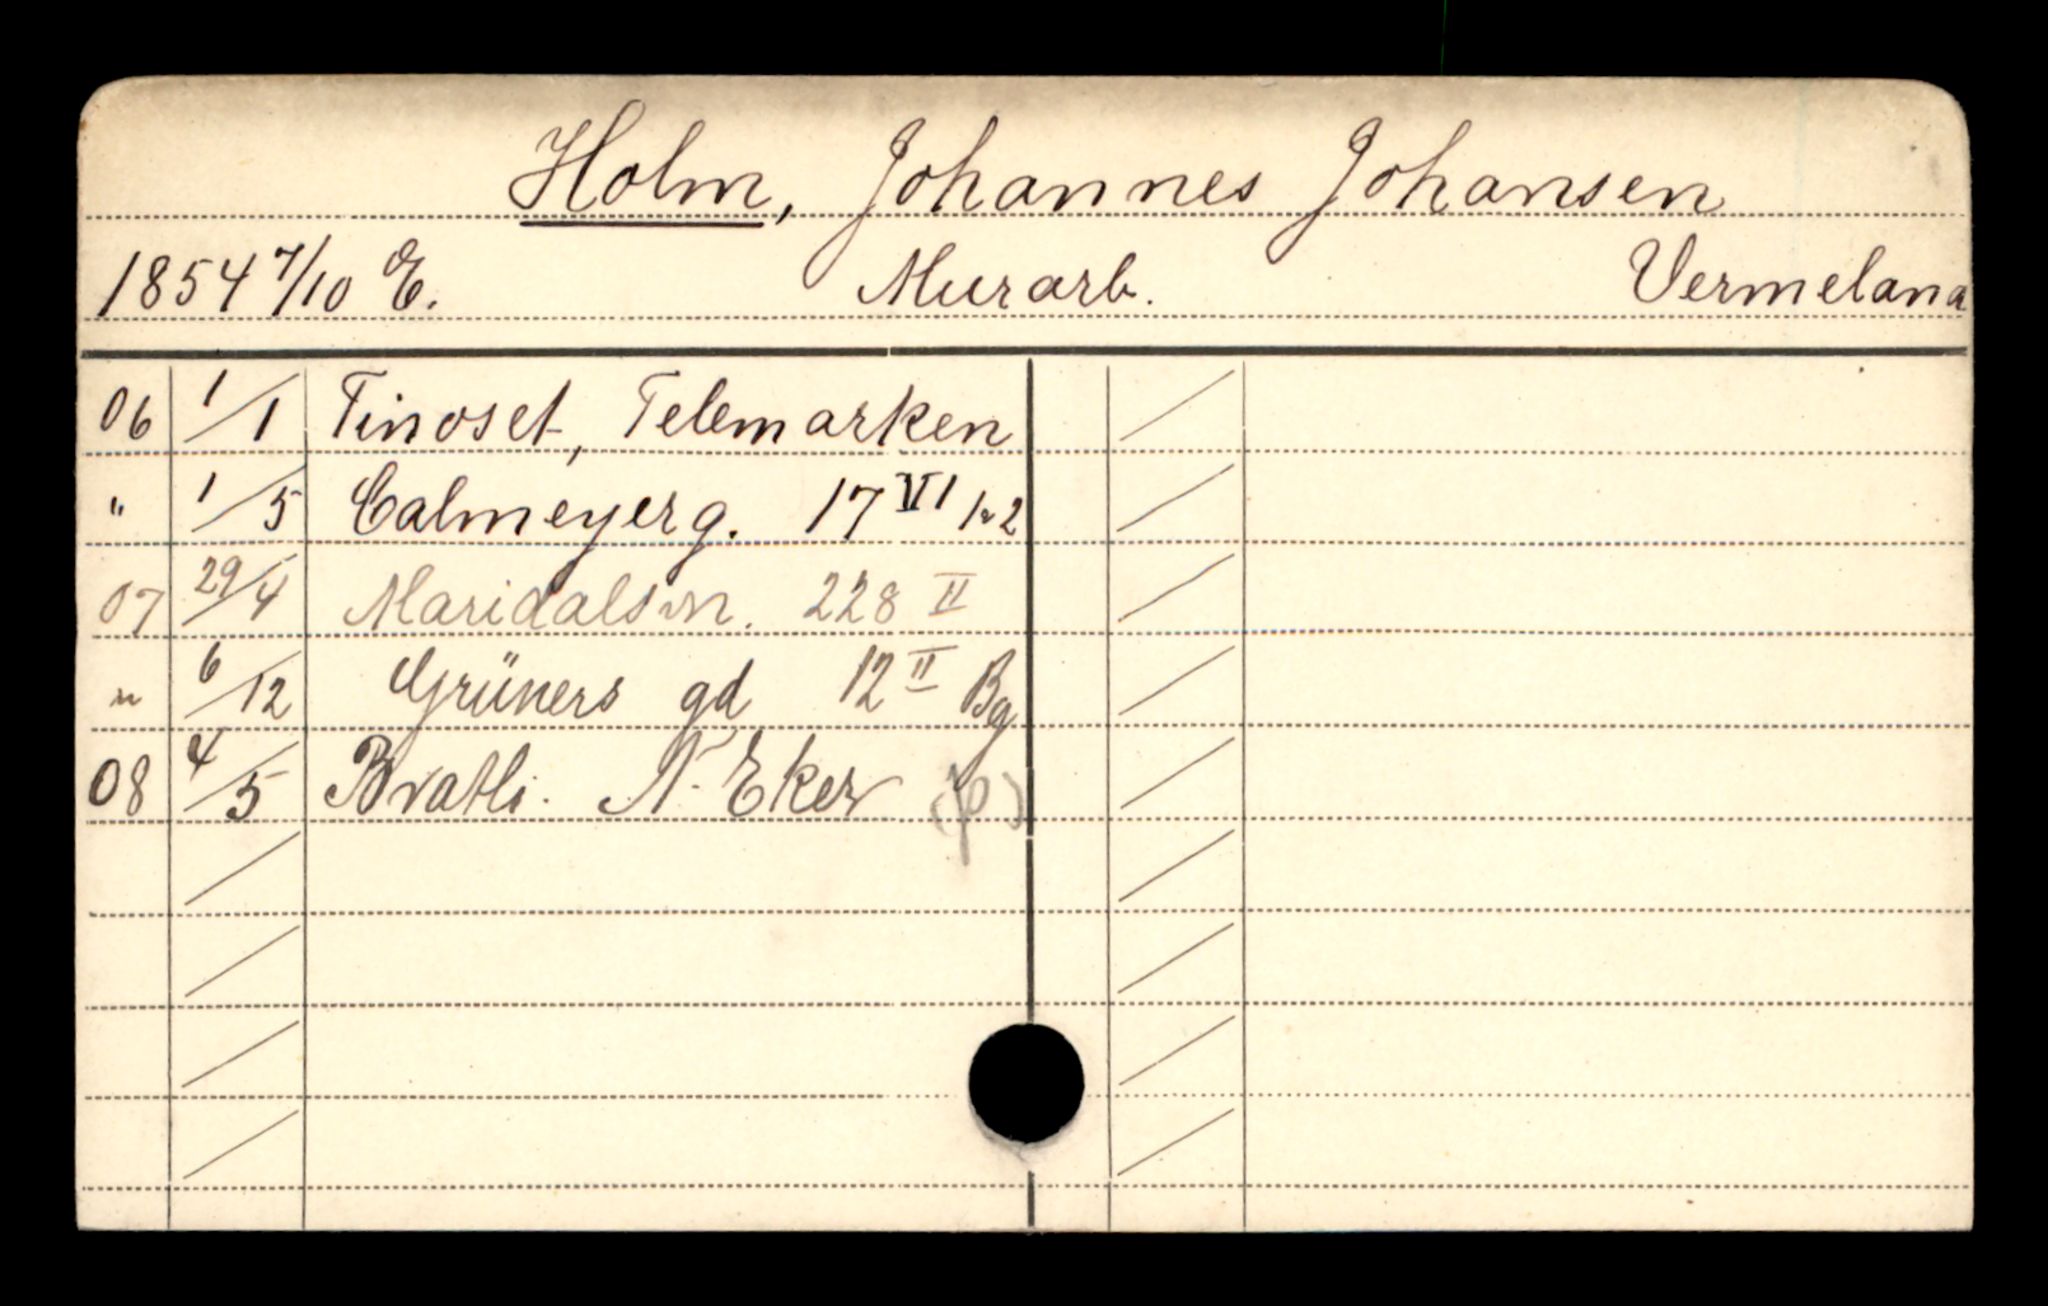 Holm, Johannes Johansen
1854 7/10 E. Murarb. Vermeland
06 1/1 Tinoset, Telemarken
" 1/5 Calmeyerg. 17 VI
07 29/4 Maridalsvn. 228 II
" 6/12 Grüners gd 12 II Bg
08 4/5 Bratli. N. Eker (p)